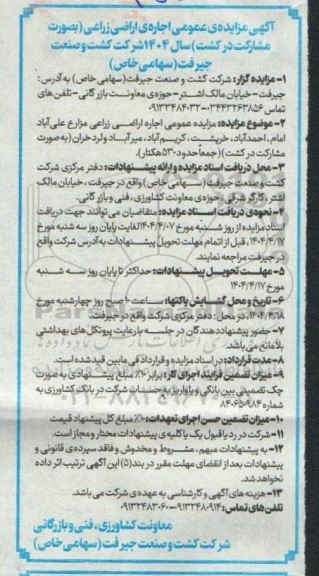 آگهی مزایده‌ی عمومی اجاره‌ی اراضی زراعی (بصورت
مشارکت در کشت) سال ۱۴۰۴ شرکت کشت و صنعت
جیرفت (سهامی خاص)
۱- مزایده گزار: شرکت کشت و صنعت جیرفت (سهامی خاص) به آدرس:
جیرفت - خیابان مالک اشتر - حوزه‌ی معاونت بازرگانی - تلفن های
تماس ۰۳۴۴۳۲۶۳۸۵۶-۰۹۱۳۳۴۸۴۰۳۲
۲- موضوع مزایده: مزایده عمومی اجاره اراضی زراعی مزارع علی آباد
امام، احمدآباد، خرپشت، کریم آباد، میرآباد و لرد خران (به صورت
مشارکت در کشت) (جمعاً حدود ۵۳۰ هکتار).
۳- محل دریافت اسناد مزایده و ارائه پیشنهادات: دفتر مرکزی شرکت
کشت و صنعت جیرفت (سهامی خاص) واقع در جیرفت، خیابان مالک
اشتر، کارگر شرقی، حوزه‌ی معاونت کشاورزی، فنی و بازرگانی.
۴- نحوه‌ی دریافت اسناد مزایده: متقاضیان می توانند جهت دریافت
اسناد مزایده از روز شنبه مورخ ۱۴۰۴/۴/۷ لغایت پایان روز سه شنبه مورخ
۱۴۰۴/۴/۱۷، قبل از اتمام مهلت تحویل پیشنهادات به آدرس شرکت واقع
در جیرفت مراجعه نمایند.
۵- مهلت تحویل پیشنهادات: حداکثر تا پایان روز سه شنبه
مورخ ۱۴۰۴/۴/۱۷
۶- تاریخ و محل گشایش پاکتها: ساعت ۱۰ صبح روز چهارشنبه مورخ
۱۴۰۴/۴/۱۸، در محل: دفتر مرکزی شرکت واقع در جیرفت.
۷- حضور پیشنهاد دهندگان در جلسه با رعایت پروتکل های بهداشتی
بلامانع می باشد.
۸- مدت قرارداد: در اسناد مزایده و قرارداد فی مابین قید شده است.
۹- میزان تضمین فرآیند اجرای کار: برابر ۱۰٪ مبلغ پیشنهادی به صورت
چک تضمینی بین بانکی و یا واریز به حساب شرکت در بانک کشاورزی به
شماره ۸۴۰۶۵۹۸۴
۱۰- میزان تضمین حسن اجرای تعهدات: ۱۰٪ مبلغ کل پیشنهاد قیمت
۱۱- شرکت در رد یا قبول یک یا کلیه ی پیشنهادات مختار و مجاز است.
۱۲- به پیشنهادات مبهم، مشروط و مخدوش و فاقد سپرده‌ی قانونی و
پیشنهادات بعد از انقضای مهلت مقرر در بند (۵) این آگهی ترتیب اثر داده
نخواهد شد.
۱۳- هزینه های آگهی و کارشناسی به عهده‌ی شرکت می باشد.
تلفن های تماس: ۰۹۱۳۲۴۸۰۹۱۴-۰۹۱۳۲۴۸۳۰۶۰
معاونت کشاورزی، فنی و بازرگانی
شرکت کشت و صنعت جیرفت (سهامی خاص)